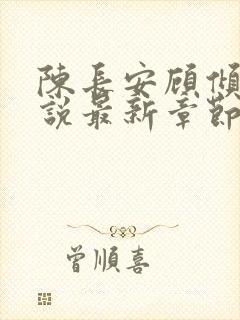 陳長安顧傾
說最新章節
曾順喜